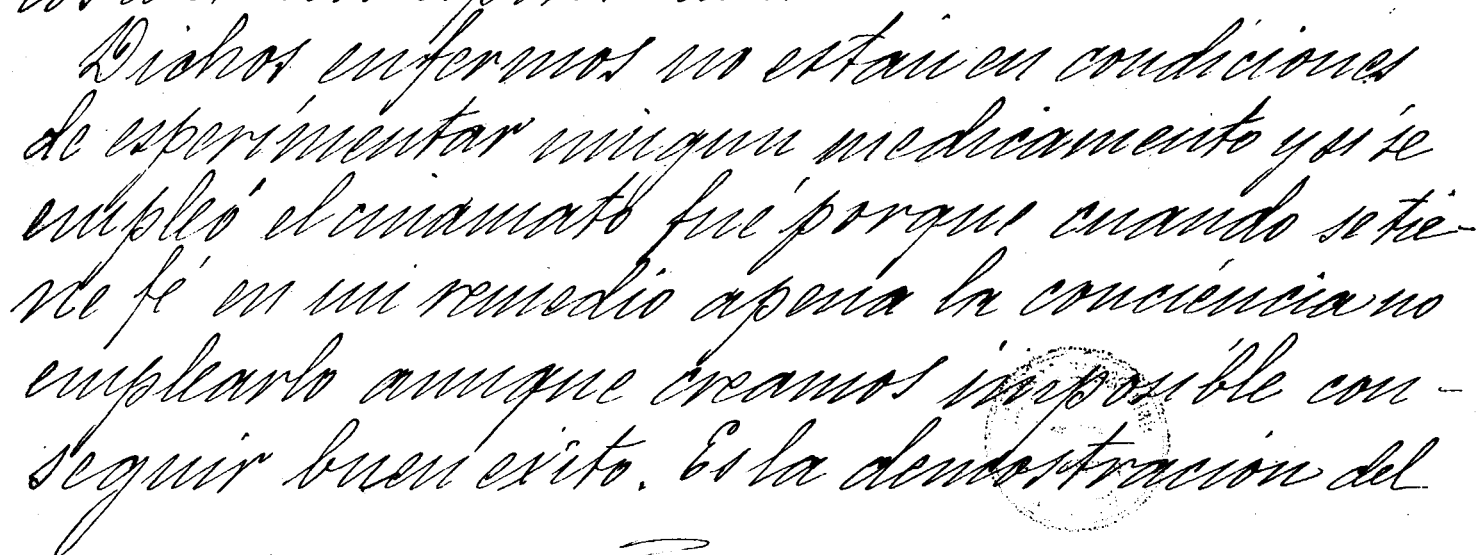 Dichos enfermos no están en condiciones
de esperimentar ningun medicamento y si se
empleó el cinamato fué porque cuando se tie-
ne fé en un remedio apena la conciencia no
emplearlo aunque creamos imposible con-
seguir buen exito. Es la demostración del